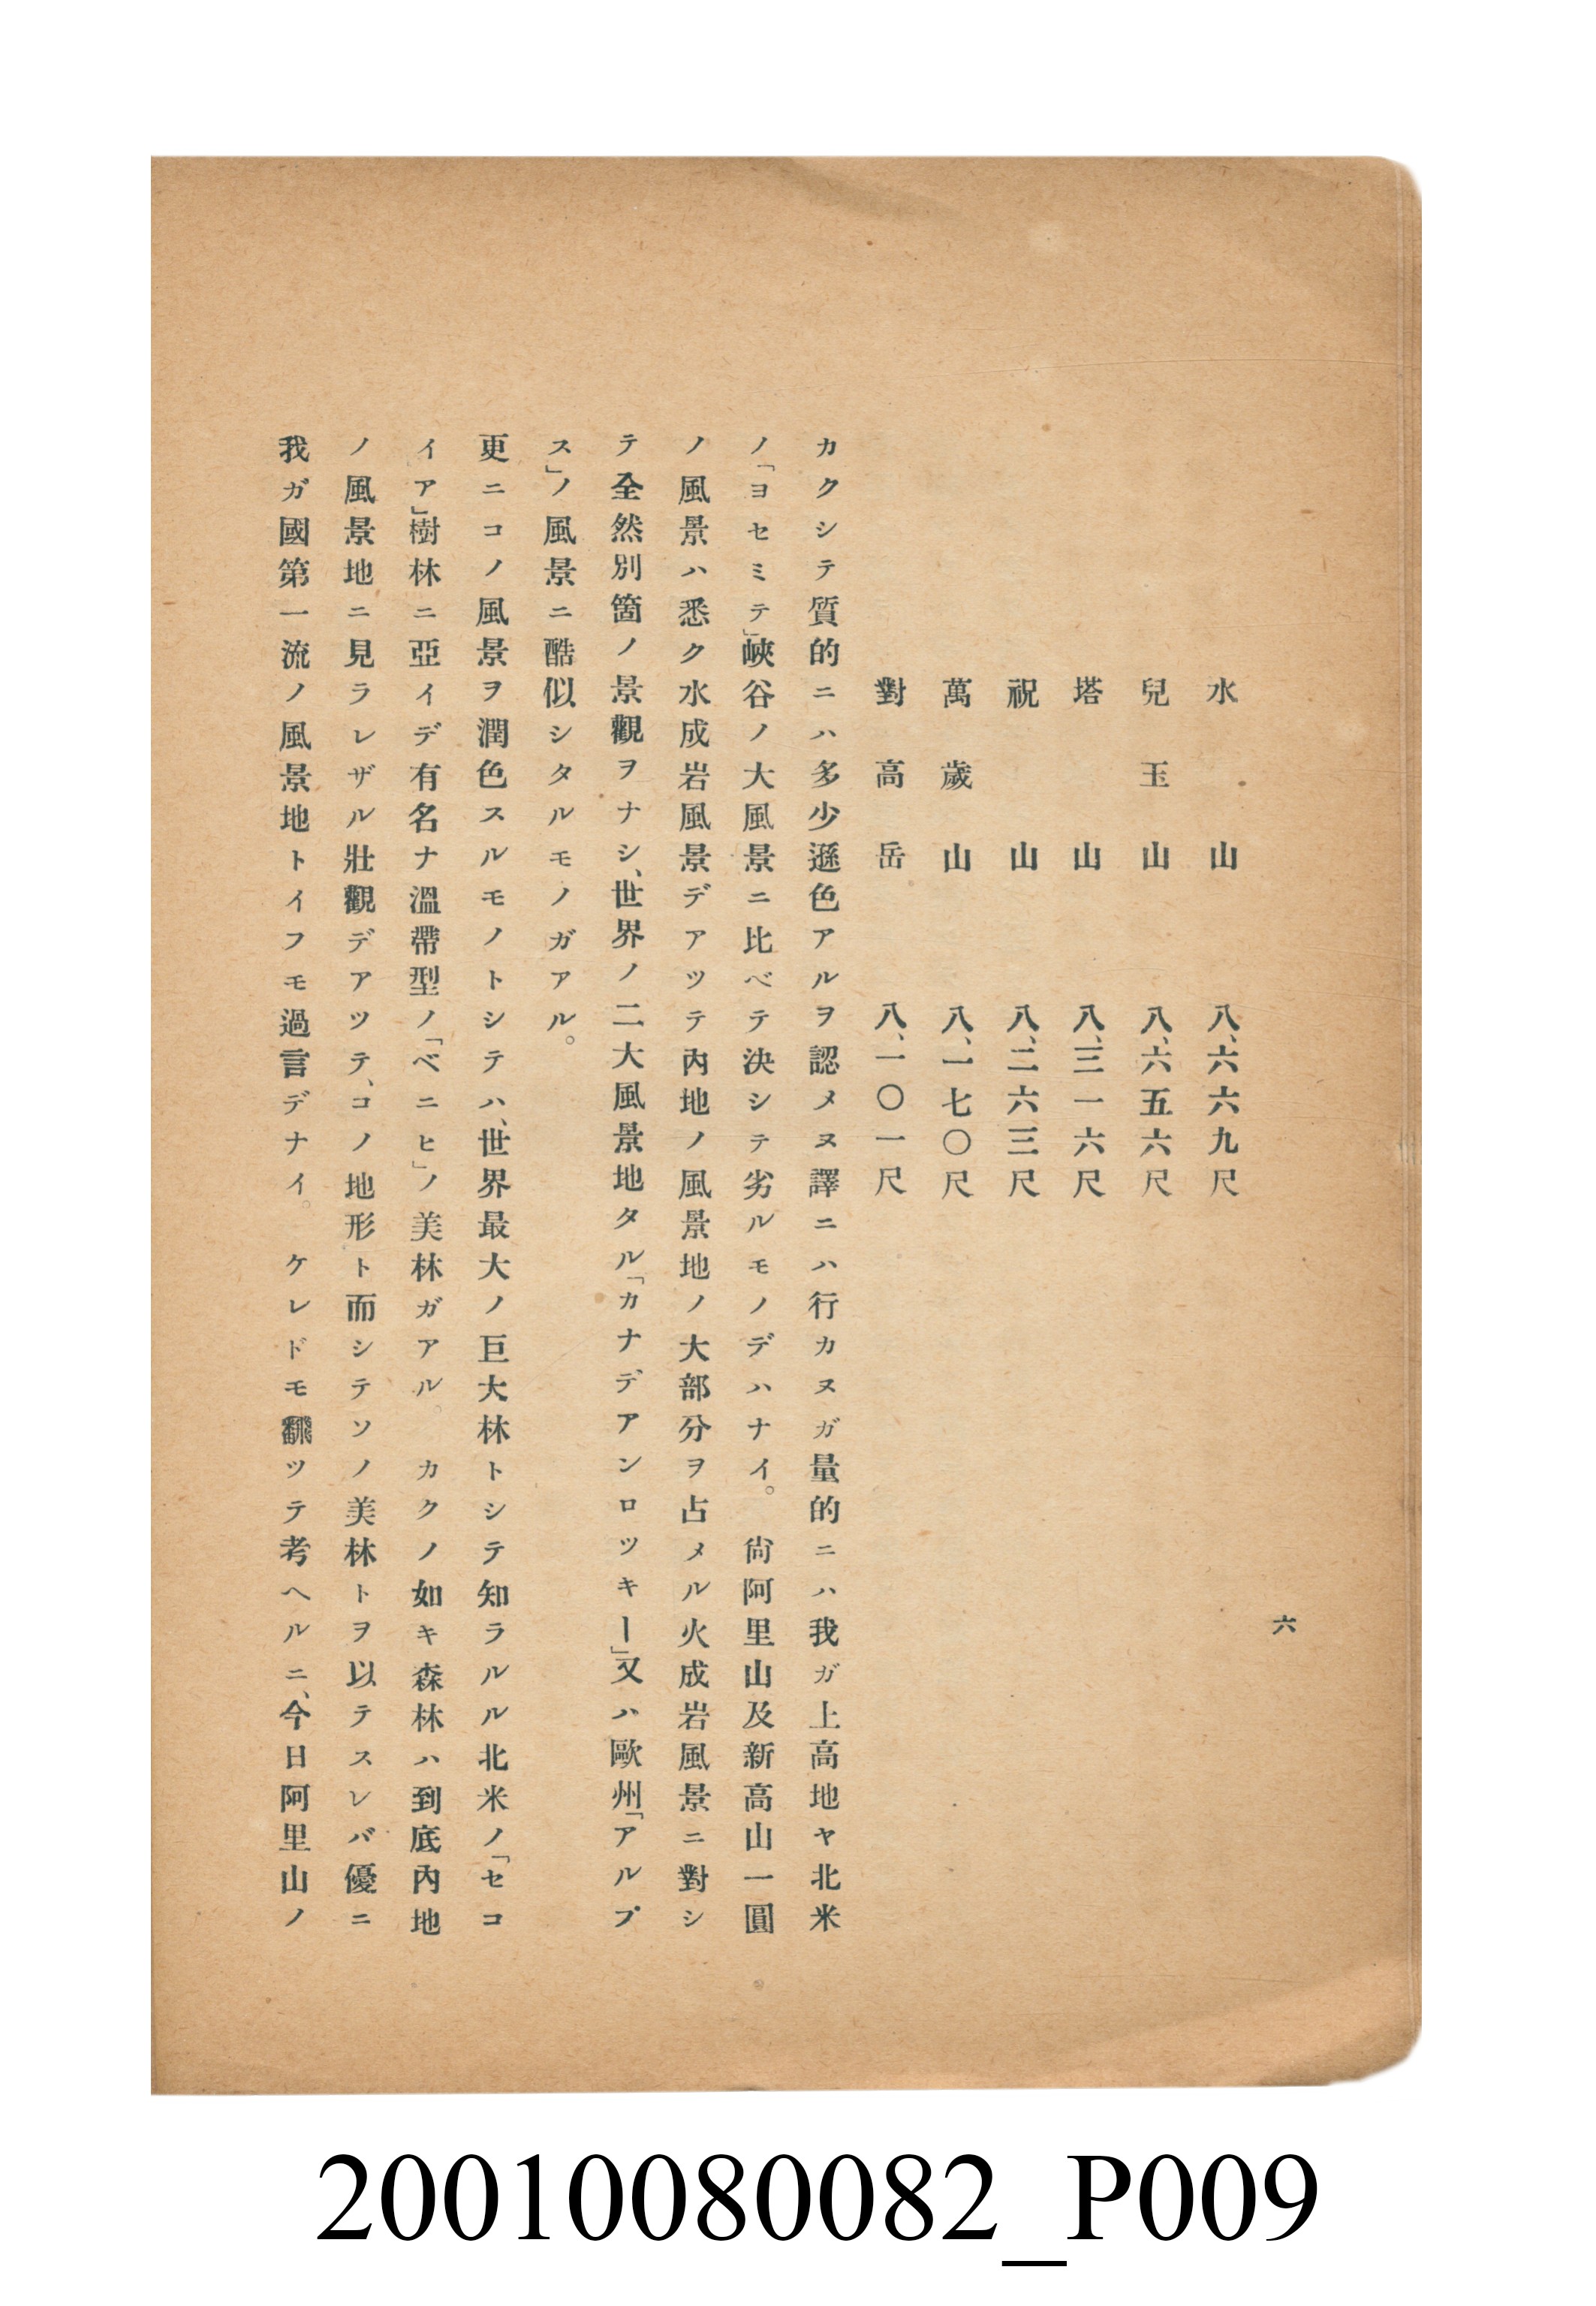 六
水山 八、六六九尺
兒玉山 八、六五六尺
塔山 八、三一六尺
祝山 八、二六三尺
萬歲山 八、一七〇尺
對高岳 八、一〇一尺
カクシテ質的ニハ多少遜色アルヲ認メヌ譯ニハ行カヌガ量的ニハ我ガ上高地ヤ北米
ノ「ヨセミテ」峽谷ノ大風景ニ比ベテ決シテ劣ルモノデハナイ。尙阿里山及新高山一圓
ノ風景ハ悉ク水成岩風景デアツテ內地ノ風景地ノ大部分ヲ占メル火成岩風景ニ對シ
テ全然別箇ノ景觀ヲナシ、世界ノ二大風景地タル「カナデアンロツキー」又ハ歐州「アルプ
ス」ノ風景ニ酷似シタルモノガアル。
更ニコノ風景ヲ潤色スルモノトシテハ、世界最大ノ巨大林トシテ知ラルル北米ノ「セコ
イア」樹林ニ亞イデ有名ナ溫帶型ノ「ベニヒ」ノ美林ガアル。カクノ如キ森林ハ到底內地
ノ風景地ニ見ラレザル壯觀デアツテ、コノ地形ト而シテソノ美林トヲ以テスレバ優ニ
我ガ國第一流ノ風景地トイフモ過言デナイ。ケレドモ飜ツテ考ヘルニ、今日阿里山ノ
20010080082_P009